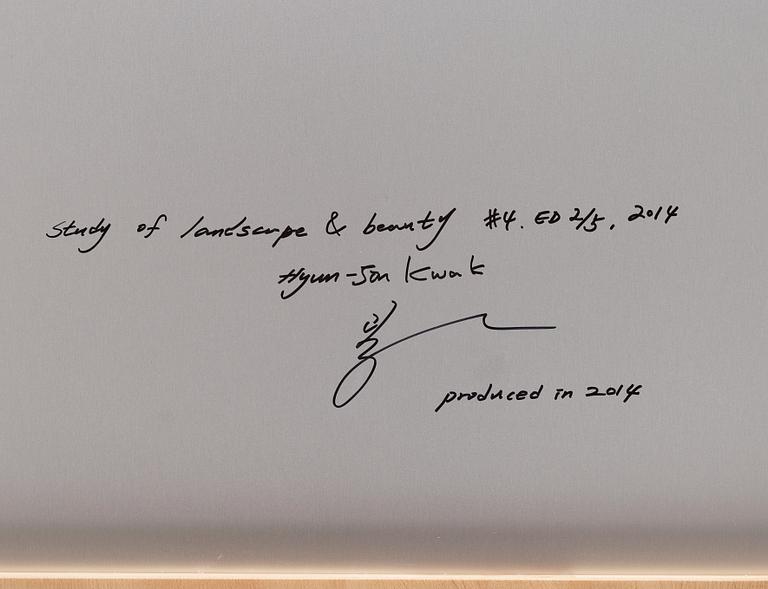 Study of landscape & beauty #4. ED 2/5, 2014
Hyun-Jin Kwak
produced in 2014